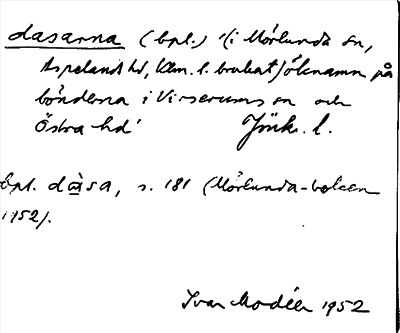 dasarna (bpl.) '(i Mörlunda sn,
Aspelands hd, Klm. l. brukat) öknamn på
bönderna i Virserums sn och
Östra hd'       Jönk. l.
bpl. dàsa, s. 181 (Mörlunda-boken
1952).
Ivar Modéer 1952